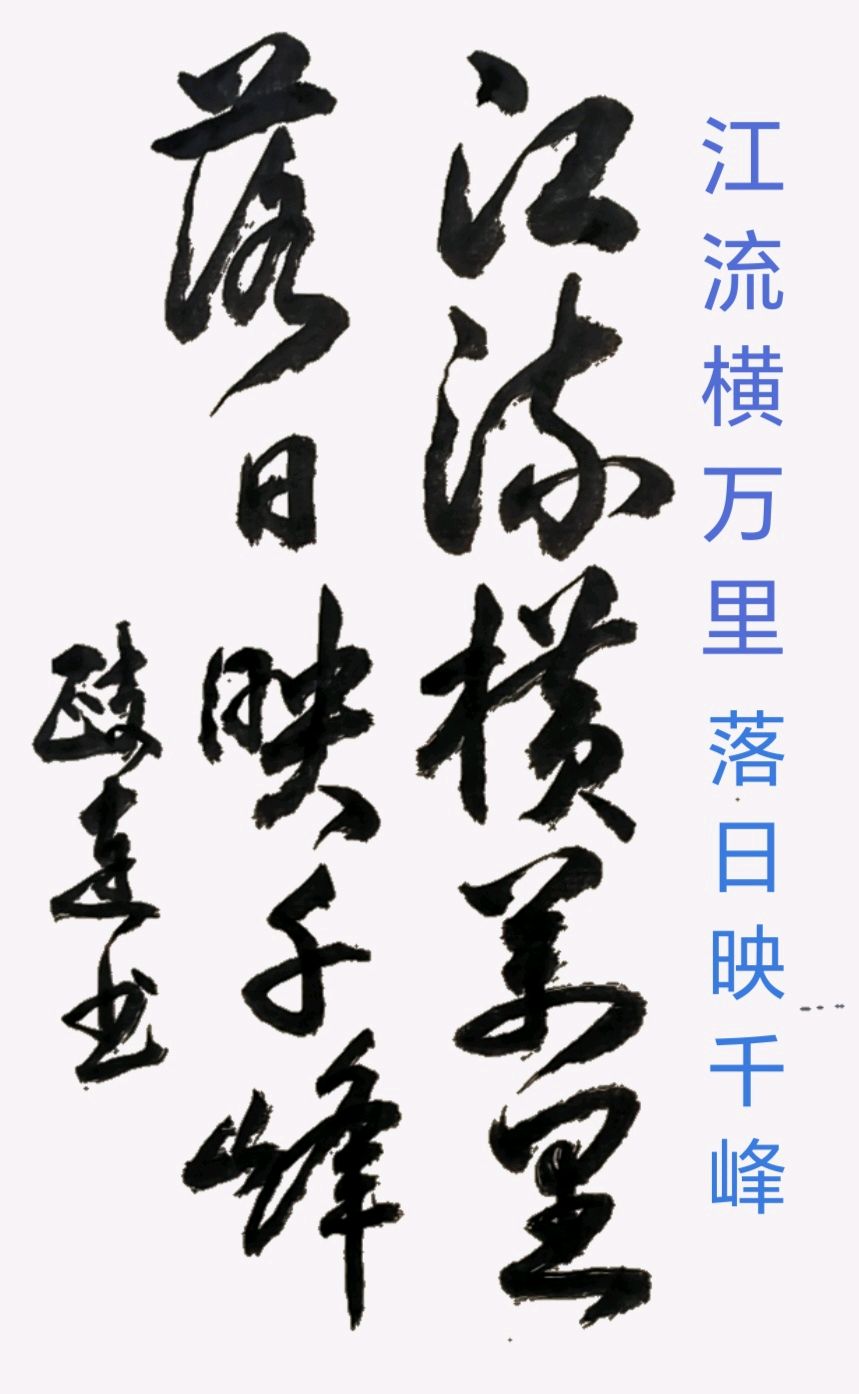 江流横万里 落日映千峰
江流横萬里
落日映千峰
书